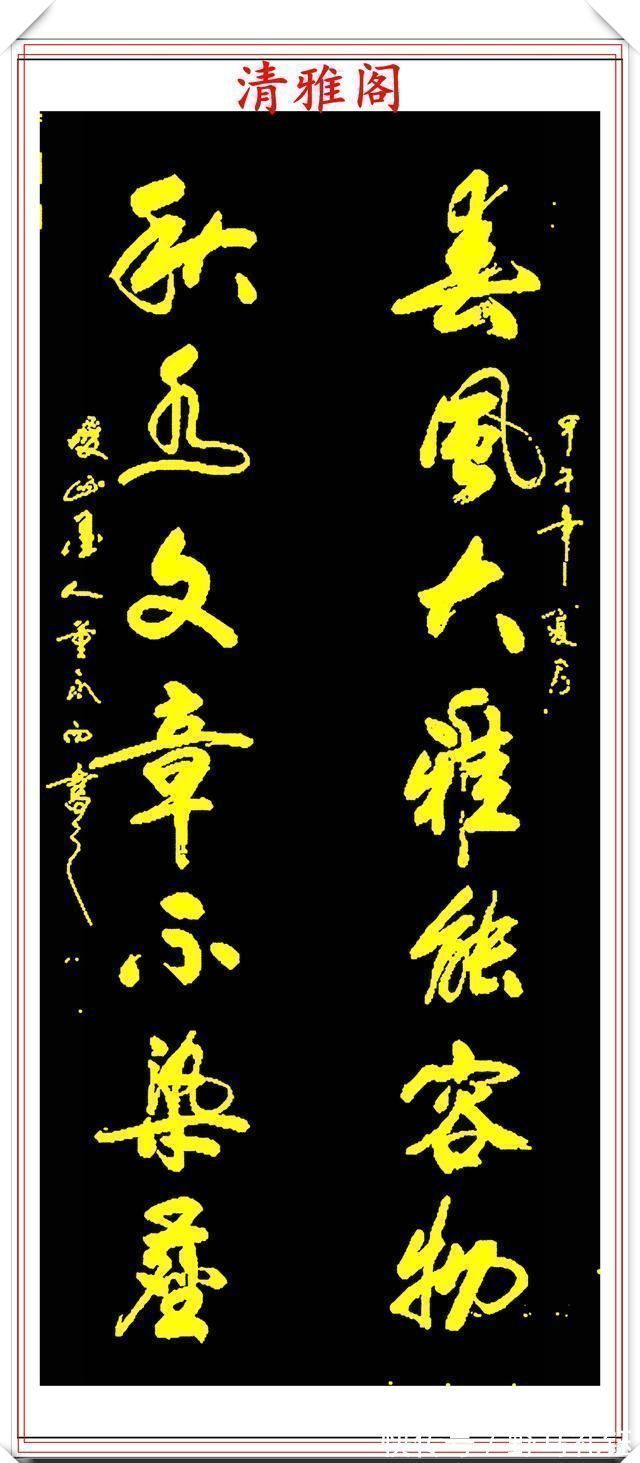 清雅阁
春風大雅能容物
甲午年夏月
秋水文章不染塵
愛泳墨人董永西書